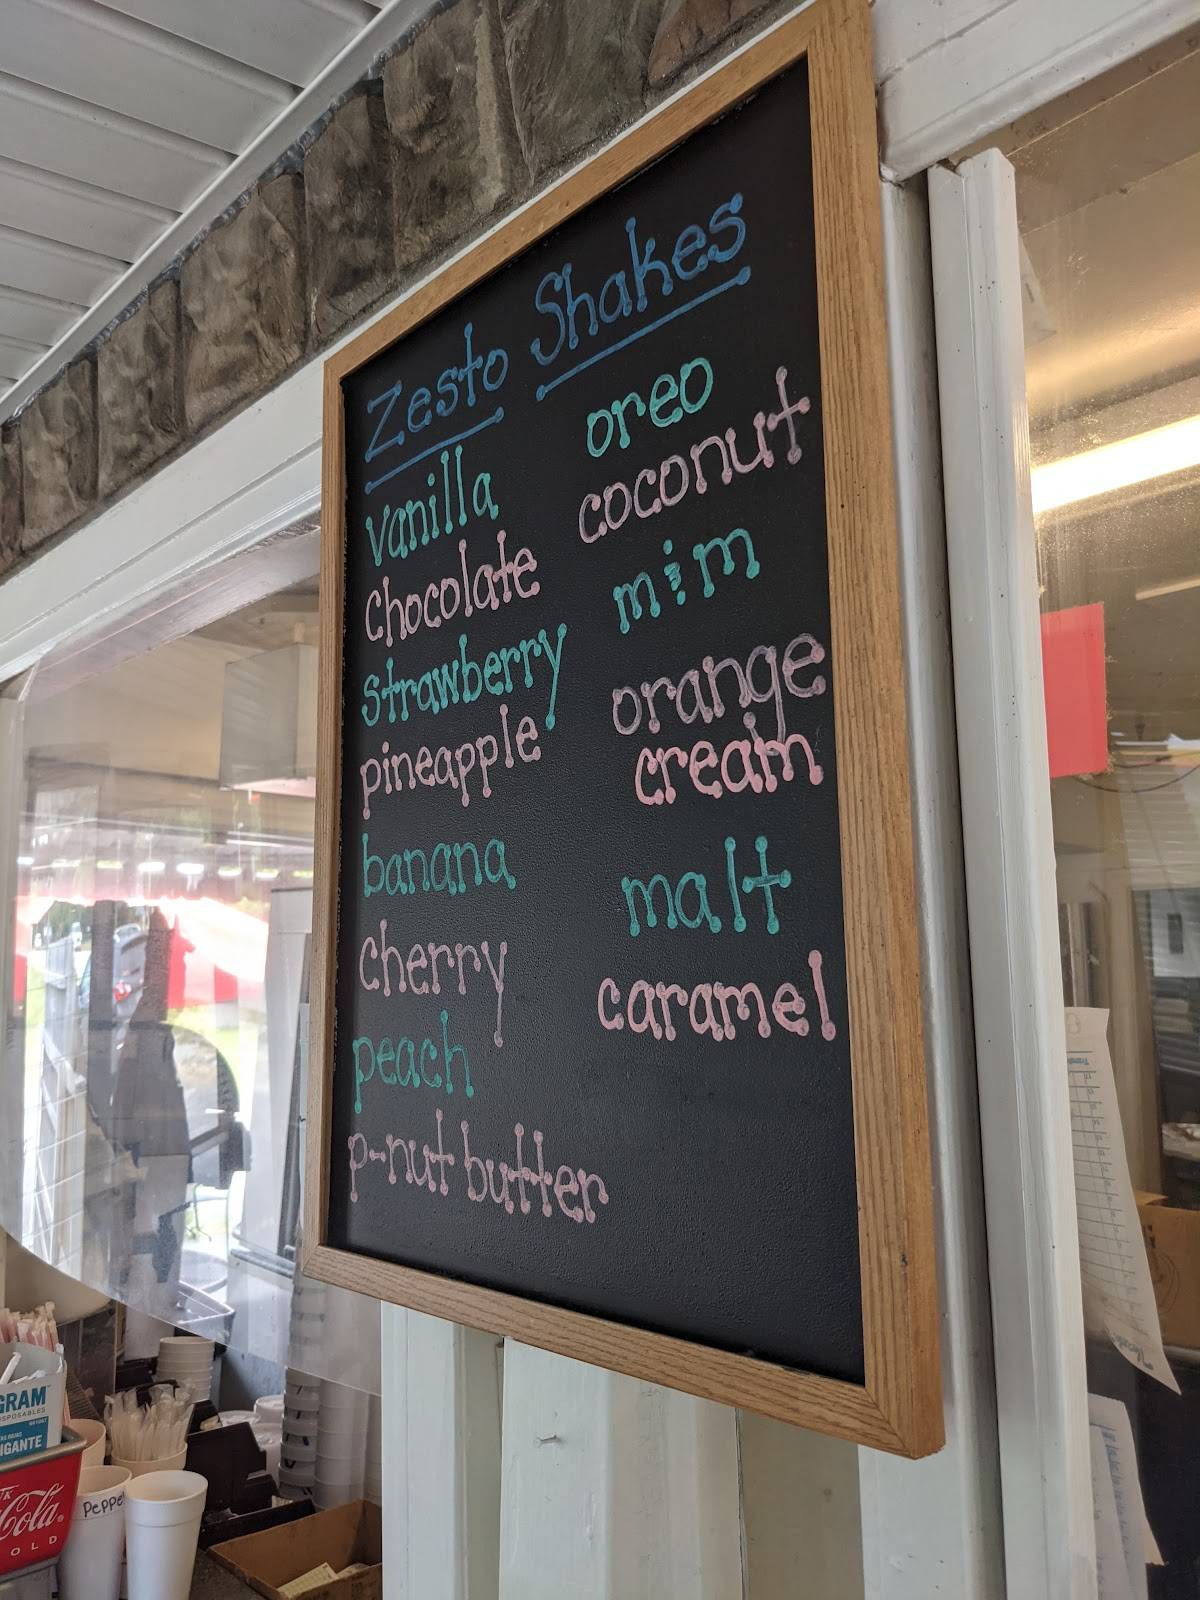 Zesto Shakes
vanilla
chocolate
strawberry
pineapple
banana
cherry
peach
p-nut butter
oreo
coconut
m&m
orange
cream
malt
caramel
GRAM
IGANTE
Cola
OLD
Peppe